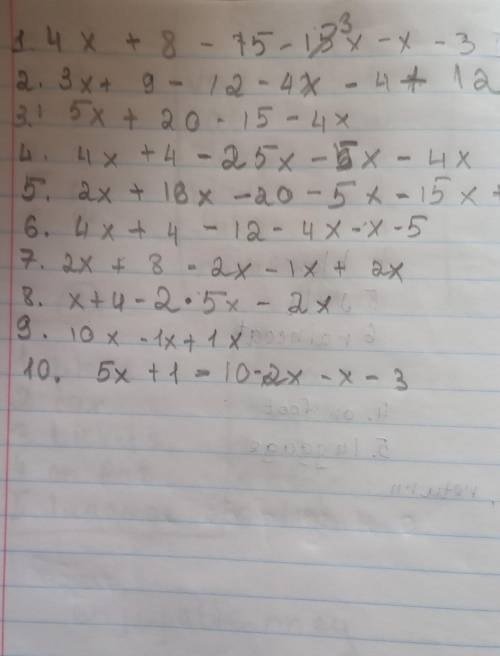 1. 4x + 8 - 75 - 13x - x - 3
2. 3x + 9 - 12 - 4x - 4 + 12
3. 5x + 20 - 15 - 4x
4. 4x + 4 - 25x - 5x - 4x
5. 2x + 18x - 20 - 5x - 15x +
6. 4x + 4 - 12 - 4x - x - 5
7. 2x + 8 - 2x - 1x + 2x
8. x + 4 - 2 · 5x - 2x
9. 10x - 1x + 1x
10. 5x + 1 - 10 - 2x - x - 3